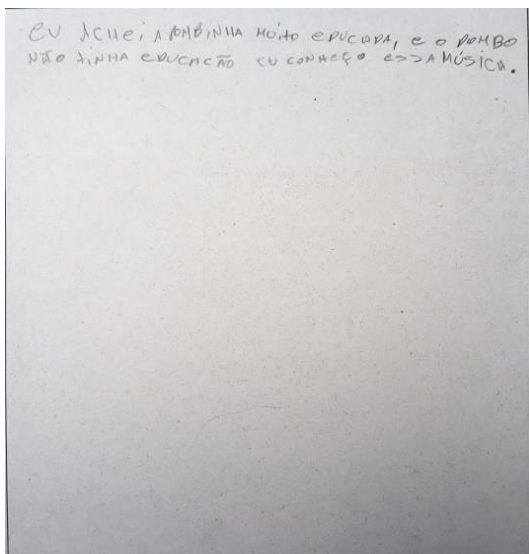 EU ACHEI A POMBINHA MUITO EDUCADA, E O POMBO
NÃO TINHA EDUCAÇÃO EU CONHEÇO ESSA MÚSICA.